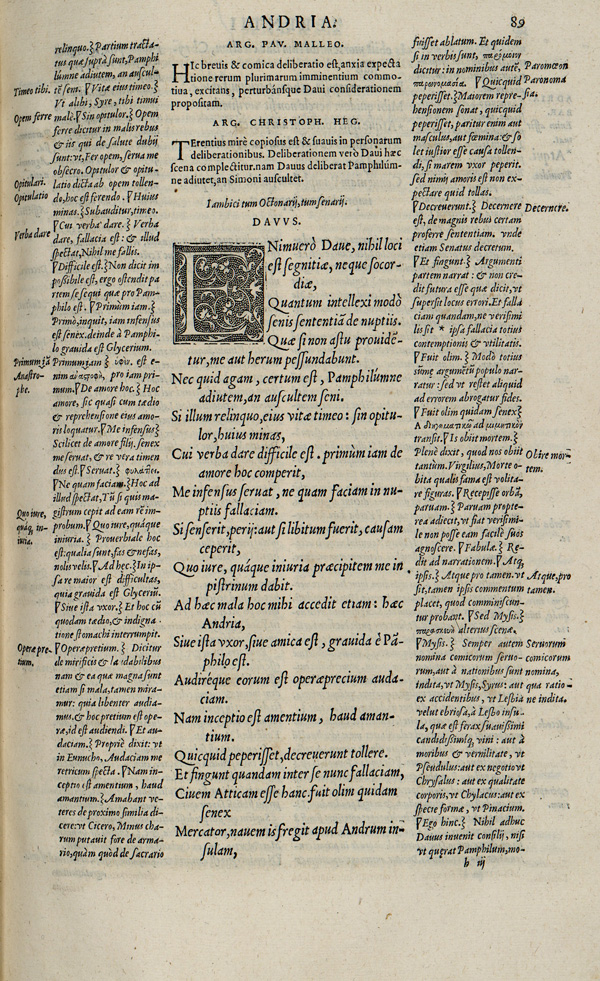 ANDRIA.
89
ARG. PAV. MALLEO.
HIc brevis & comica deliberatio est, anxia expecta
tione rerum plurimarum imminentium commo-
tiua, excitans, perturbánsque Daui considerationem
propositam.
ARG. CHRISTOPH. HEG.
TErentius mirè copiosus est & suauis in personarum
deliberationibus. Deliberationem verò Daui hæc
scena complectitur. nam Dauus deliberat Pamphilúm-
ne adiutet, an Simoni auscultet.
Iambici tum Octonarij, tum senarij.
DAVVS.
ENimuerò Daue, nihil loci
est segnitiæ, neque socor-
diæ,
Quantum intellexi modò
senis sententiā de nuptiis.
Quæ si non astu prouidē-
tur, me aut herum pessundabunt.
Nec quid agam, certum est, Pamphilumne
adiutem, an auscultem seni.
Si illum relinquo, eius vitæ timeo: sin opitu-
lor, huius minas,
Cui verba dare difficile est. primùm iam de
amore hoc comperit,
Me infensus seruat, ne quam faciam in nu-
ptiis fallaciam.
Si senserit, perij: aut si libitum fuerit, causam
ceperit,
Quo iure, quáque iniuria præcipitem me in
pistrinum dabit.
Ad hæc mala hoc mihi accedit etiam: hæc
Andria,
Siue ista vxor, siue amica est, grauida è Pā-
philo est.
Audiréque eorum est operæprecium auda-
ciam.
Nam inceptio est amentium, haud aman-
tium.
Quicquid peperisset, decreuerunt tollere.
Et fingunt quandam inter se nunc fallaciam,
Ciuem Atticam esse hanc. fuit olim quidam
senex
Mercator, nauem is fregit apud Andrum in-
sulam,
relinquo.} Partium tracta-
tus quæ suprà sunt, Pamphi
lúmne adiutem, an auscul-
tē sent. ¶Vitæ eius timeo.}
Vt alibi, Syre, tibi timui
malè. ¶Sin opitulor.} Opem
ferre dicitur in malis rebus
& iis qui de salute dubij
sunt: vt, Fer opem, serua me
obsecro. Opitulor & opitu-
latio dicta ab opem tollen-
do, hoc est ferendo. ¶Huius
minas.} Subauditur, timeo.
¶Cui verba dare.} Verba
dare, fallacia est: & illud
spectat, Nihil me fallis.
¶Difficile est.} Non dicit im
possibile est, ergo ostendit pa
rtem se sequi quæ pro Pam-
philo est. ¶Primùm iam.}
Primò, inquit, iam infensus
est senex. deinde à Pamphi-
lo grauida est Glycerium.
Primum iam } est e-
nim, pro iam pri-
mum. ¶De amore hoc.} Hoc
amore, sic quasi cum tædio
& reprehensione eius amo-
ris loquatur. ¶Me infensus}
Scilicet de amore filij. senex
me seruat, & re vera timen
dus est. ¶Seruat.}
¶Ne quam faciam.} Hoc ad
illud spectat, Tū si quis ma-
gistrum cepit ad eam rē im-
probum. ¶Quo iure, quáque
iniuria.} Prouerbiale hoc
est: qualia sunt, fas & nefas,
nolis velis. ¶Ad hęc.} In ip-
sa re maior est difficultas,
quia grauida est Glyceriū.
¶Siue ista vxor.} Et hoc cū
quodam tædio, & indigna-
tione stomachi interrumpit.
¶Operæpretium.} Dicitur
de mirificis & laudabilibus
nam & ea quæ magna sunt
etiam si mala, tamen mira-
mur: quia libenter audia-
mus, & hoc pretium est ope-
ræ, id est audiendi. ¶Et au-
daciam.} Propriè dixit: vt
in Eunucho, Audaciam me
retricum specta. ¶Nam in-
ceptio est amentium, haud
amantium.} Amabant ve-
teres de proximo similia di-
cere: vt Cicero, Minus cha-
rum putauit fore de arma-
rio, quàm quòd de sacrario
Timeo tibi.
Opem ferre
Opitulari.
Opitulatio
Verba dare
Primum iā
Anastro-
phe.
Quo iure,
quáq, in-
iuria.
Operæpre-
tium.
fuisset ablatum. Et quidem
si in verbis sunt,
dicitur: in nominibus autē,
¶Quicquid
peperisset.} Maiorem repre-
hensionem sonat, quicquid
peperisset, paritur enim aut
masculus, aut fœmina: & so
let iustior esse causa tollen-
di, si marem vxor peperit.
sed nimij amoris est non ex-
pectare quid tollas.
¶Decreuerunt.} Decernere
est, de magnis rebus certam
proferre sententiam. vnde
etiam Senatus decretum.
¶Et fingunt.} Argumenti
partem narrat: & non cre-
dit futura esse quæ dicit, vt
supersit locus errori. Et falla
ciam quandam, ne verisimi
lis sit * ipsa fallacia totius
contemptionis & vtilitatis.
¶Fuit olim.} Modò totius
argumētū populo nar-
ratur: sed vt restet aliquid
ad errorem abrogatur fides.
¶Fuit olim quidam senex}
A
transit. ¶Is obiit mortem.}
Plenè dixit, quod nos obiit
tantùm. Virgilius, Morte o-
bita qualis fama est volita-
re figuras. ¶Recepisse orbā,
paruam.} Paruam propte-
rea adiecit, vt fiat verisimi-
le non posse eam facilè suos
agnoscere. ¶Fabulæ.} Re-
dit ad narrationem. ¶Atq,
ipsis.} Atque pro tamen. vt
sit, tamen ipsis commentum
placet, quod comminiscun-
tur probant. ¶Sed Mysis.}
alterius scenæ.
¶Mysis.} Semper autem
nomina comicorum seruo-
rum, aut à nationibus sunt
indita, vt Mysis, Syrus: aut
ex accidentibus, vt Lesbia
velut ebriosa, à Lesbo insu-
la, quæ est ferax suauissimi
candidissimíq, vini: aut à
moribus & vernilitate, vt
Pseudulus: aut ex negotio vt
Chrysalus: aut ex qualitate
corporis, vt Chylacus: aut ex
specie formæ, vt Pinacium.
¶Ego hinc.} Nihil adhuc
Dauus inuenit consilij, nisi
vt quęrat Pamphilum, mo-
h iij
Paromœon
Paronoma
Decernere.
Obire mor-
tem.
Atque, pro
tamen.
Seruorum
comicorum
nomina,
qua ratio-
ne indita.